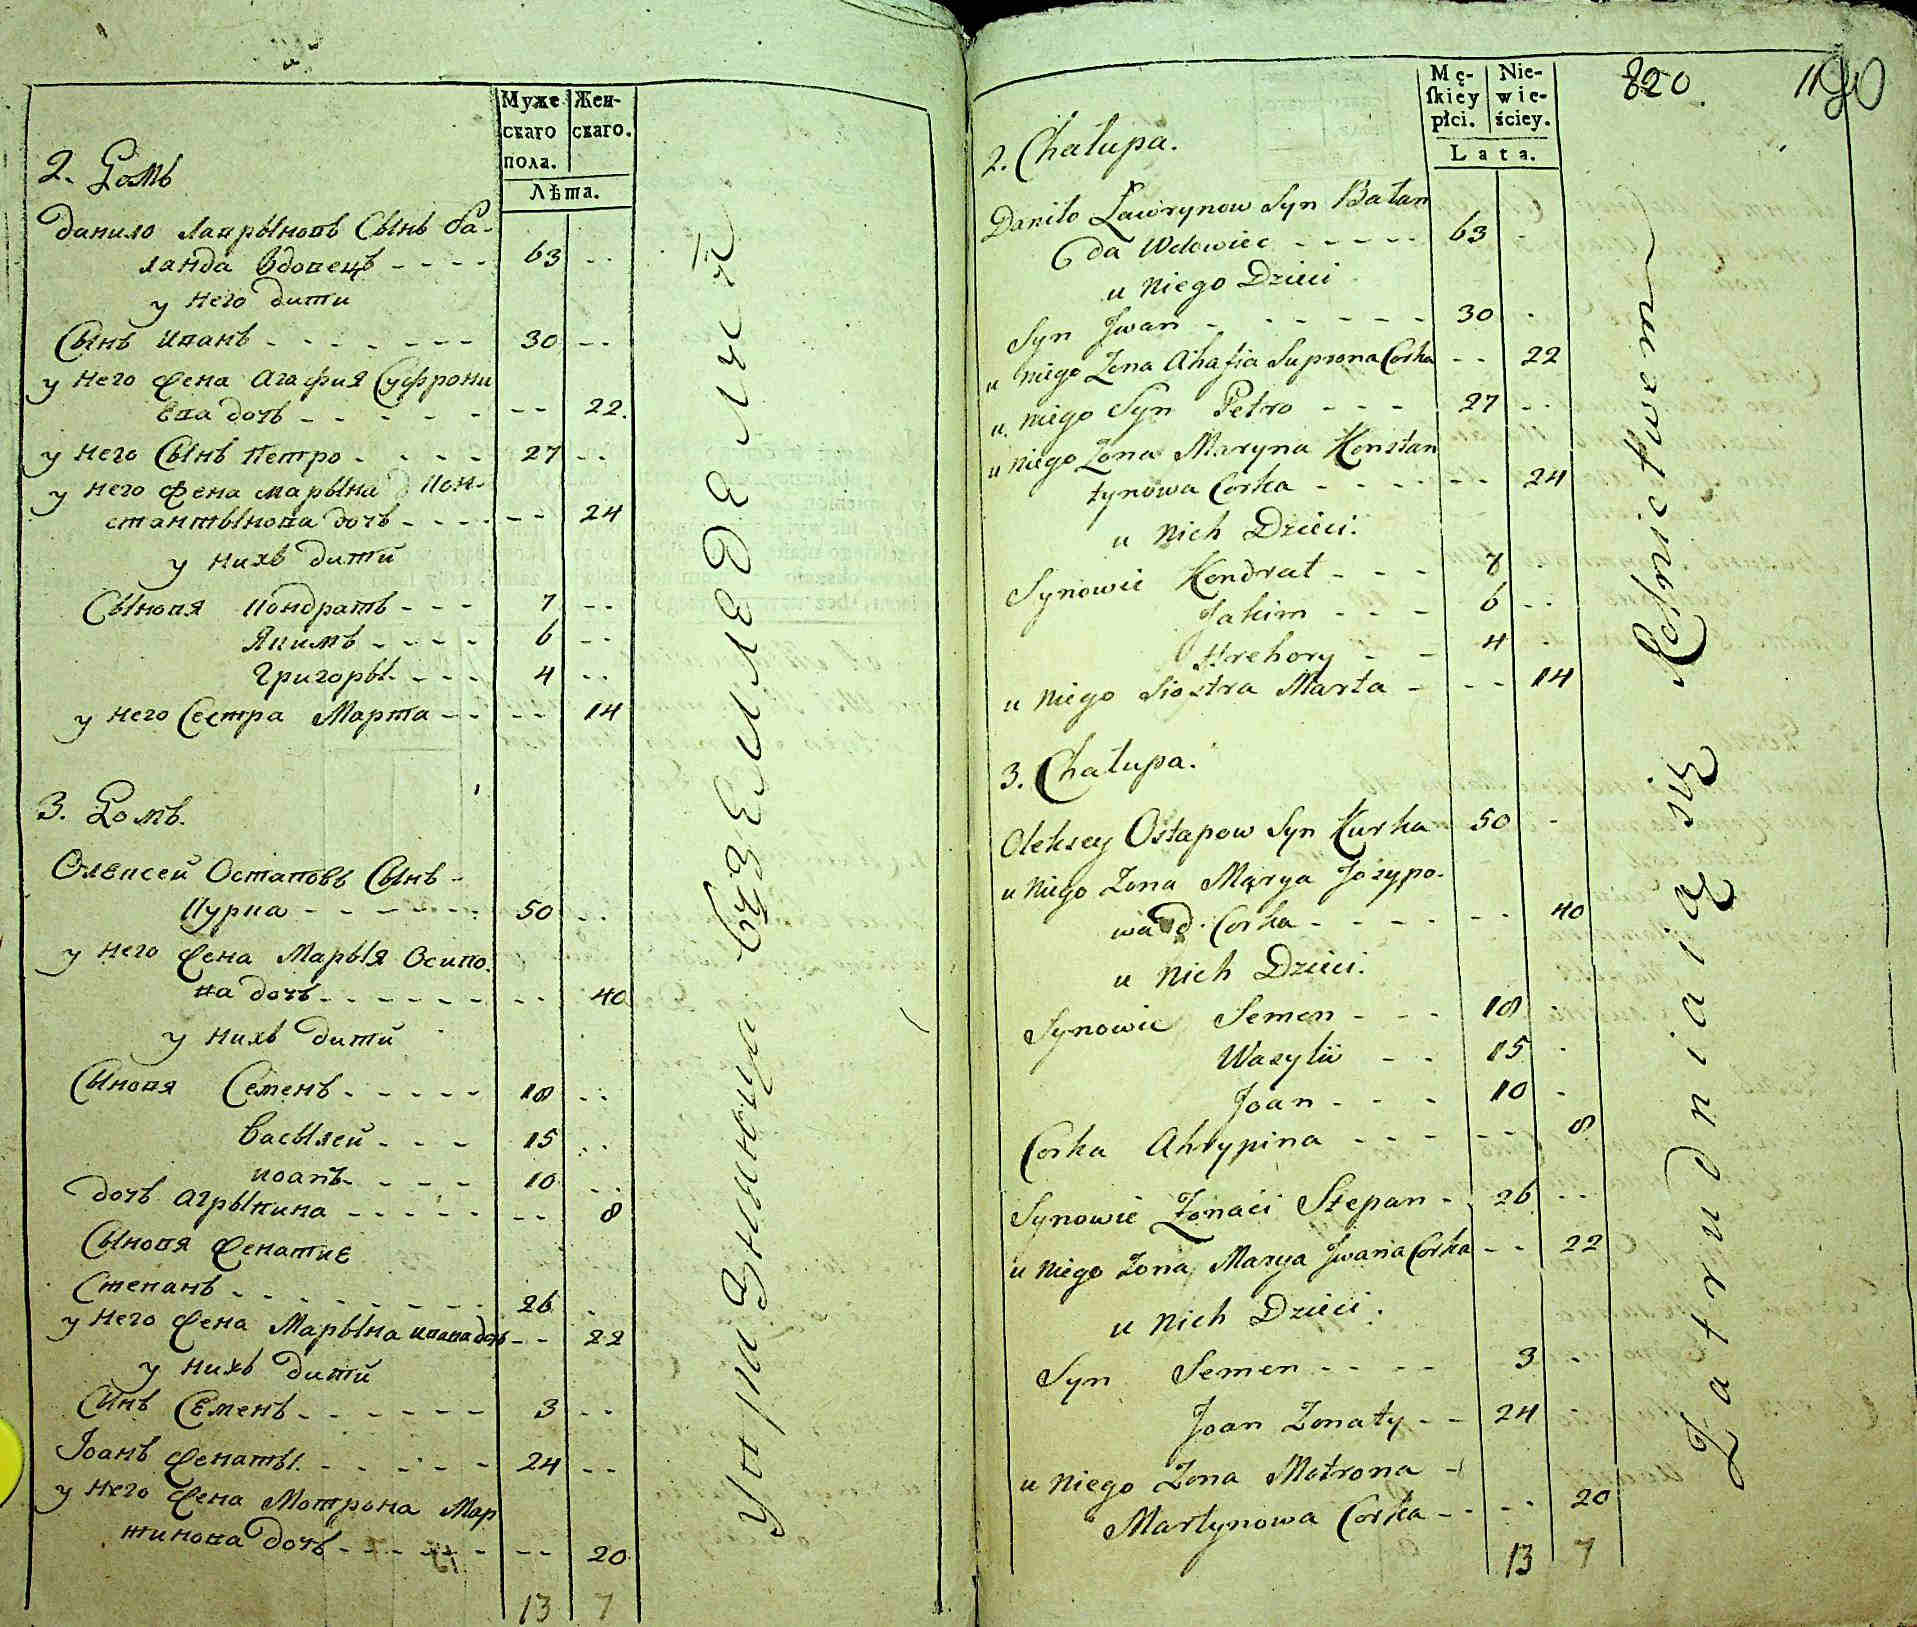 Муже скаго пола.
Жен- скаго.
Лѣта.
2. Домъ
Данило Лаврыновъ Сынъ Ба-
ланда вдовецъ - - - - 63 - -
у него дити
Сынъ Иванъ - - - - - - - 30 - -
у него жена Агафия Суфрони
ева дочъ - - - - - - - - 22.
у него Сынъ Петро - - - - 27 - -
у него жена Марына Кон-
стантынова дочъ - - - - - - 24
у нихъ дити
Сыновя Кондратъ - - - 7 - -
Якимъ - - - - 6 - -
Григоры - - - - 4 - -
у него Сестра Марта - - - - 14
3. Домъ.
Олексей Остаповъ Сынъ -
Курка - - - - - - - 50 - -
у него жена Марыя Осипо-
ва дочъ - - - - - - - - 40
у нихъ дити
Сыновя Семенъ - - - - - 18 - -
Васылей - - - - 15 - -
Иоанъ - - - - 10 - -
дочъ Агрыпина - - - - - - - 8
Сыновя женатие
Степанъ - - - - - - - 26 -
у него жена Марына Ивана дочъ - - 22
у нихъ дити
Сынъ Семенъ - - - - - - 3 - -
Іоанъ женаты - - - - - 24 - -
у него жена Мотрона Мар
тинова дочъ - - - - - - - 20
13 7
Упражняюца въ земледелии
820
1190
Mę- skiey płci.
Nie- wie- ściey.
Lata.
2. Chałupa.
Daniło Ławrynow Syn Bałan
da Wdowiec - - - - - 63 -
u niego Dzieci
Syn Jwan - - - - - - - 30 -
u niego Żona Ahafia Suprona Corka - - 22
u niego Syn Petro - - - 27 - -
u niego Żona Maryna Konstan
tynowa Corka - - - - - - 24
u nich Dzieci.
Synowie Kondrat - - - 7
Jakim - - - 6 - -
Hrehory - - 4 -
u niego Siostra Marta - - - 14
3. Chałupa.
Oleksey Ostapow Syn Kurka 50 -
u niego Żona Marya Jozypo-
wa Corka - - - - - - 40
u nich Dzieci.
Synowie Semen - - - 18 -
Wasylii - - 15 -
Joan - - - 10 -
Corka Ahrypina - - - - - - 8
Synowie Żonaci Stepan - 26 - -
u niego Żona Marya Jwana Corka - - 22
u nich Dzieci.
Syn Semen - - - - 3 -
Joan Żonaty - - 24 -
u niego Żona Motrona -
Martynowa Corka - - - - 20
13 7
Zatrudniaią się Rolnictwem